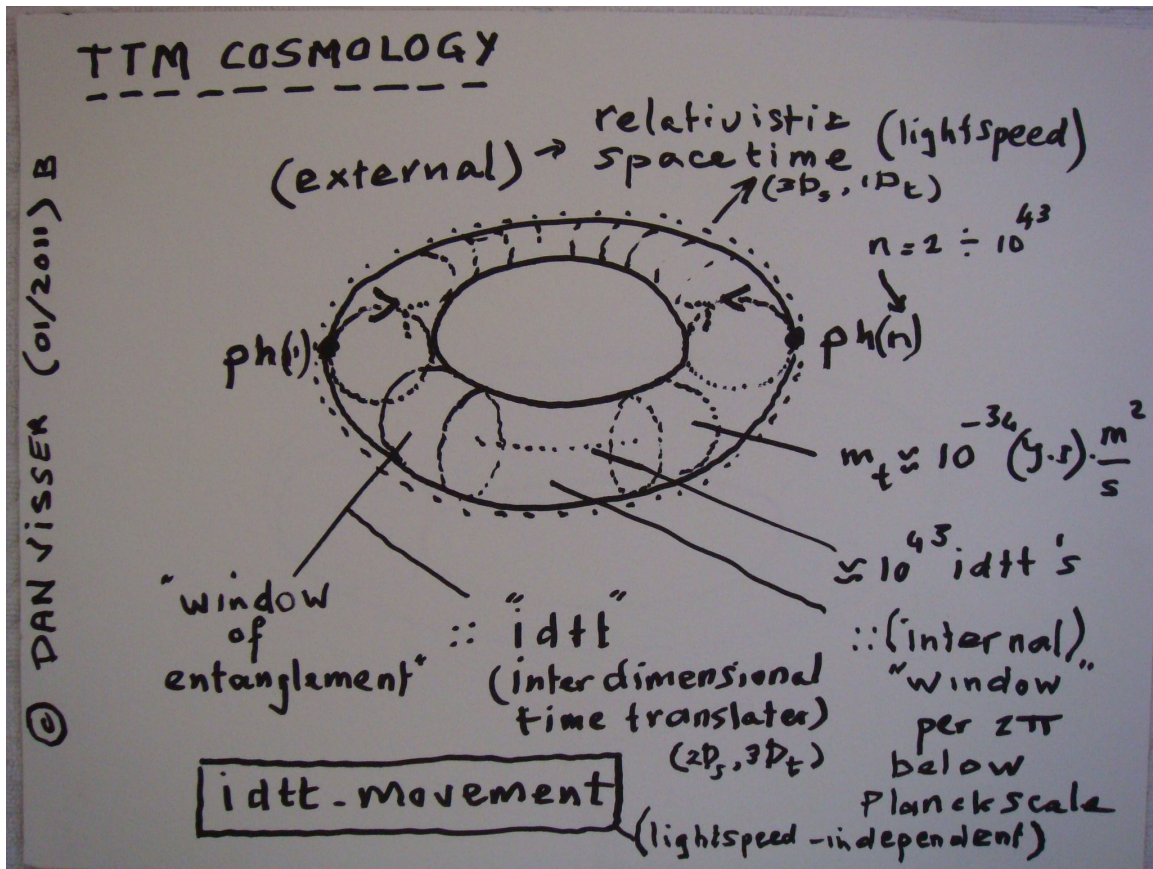 TTM COSMOLOGY
© DAN VISSER (01/2011) B
(external) → relativistic
spacetime (lightspeed)
(3Ds, 1Dt)
n = 2 ÷ 10^43
ph(1)
ph(n)
mt ≈ 10^-34 (y.s). m^2/s
≈ 10^43 idtt's
"window
of
entanglement"
:: "idtt"
(interdimensional
time translater)
(2Ds, 3Dt)
:: (internal)
"window"
per 2π
below
Planckscale
idtt-movement
(lightspeed-independent)